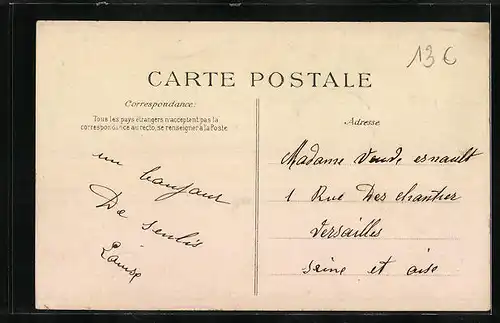 136
CARTE POSTALE
Correspondance:
Tous les pays étrangers n'acceptent pas la
correspondance au recto, se renseigner à la Poste
un bonjour
De senlis
Louise
Adresse
Madame esnault
1 Rue Des chantier
versailles
seine et oise